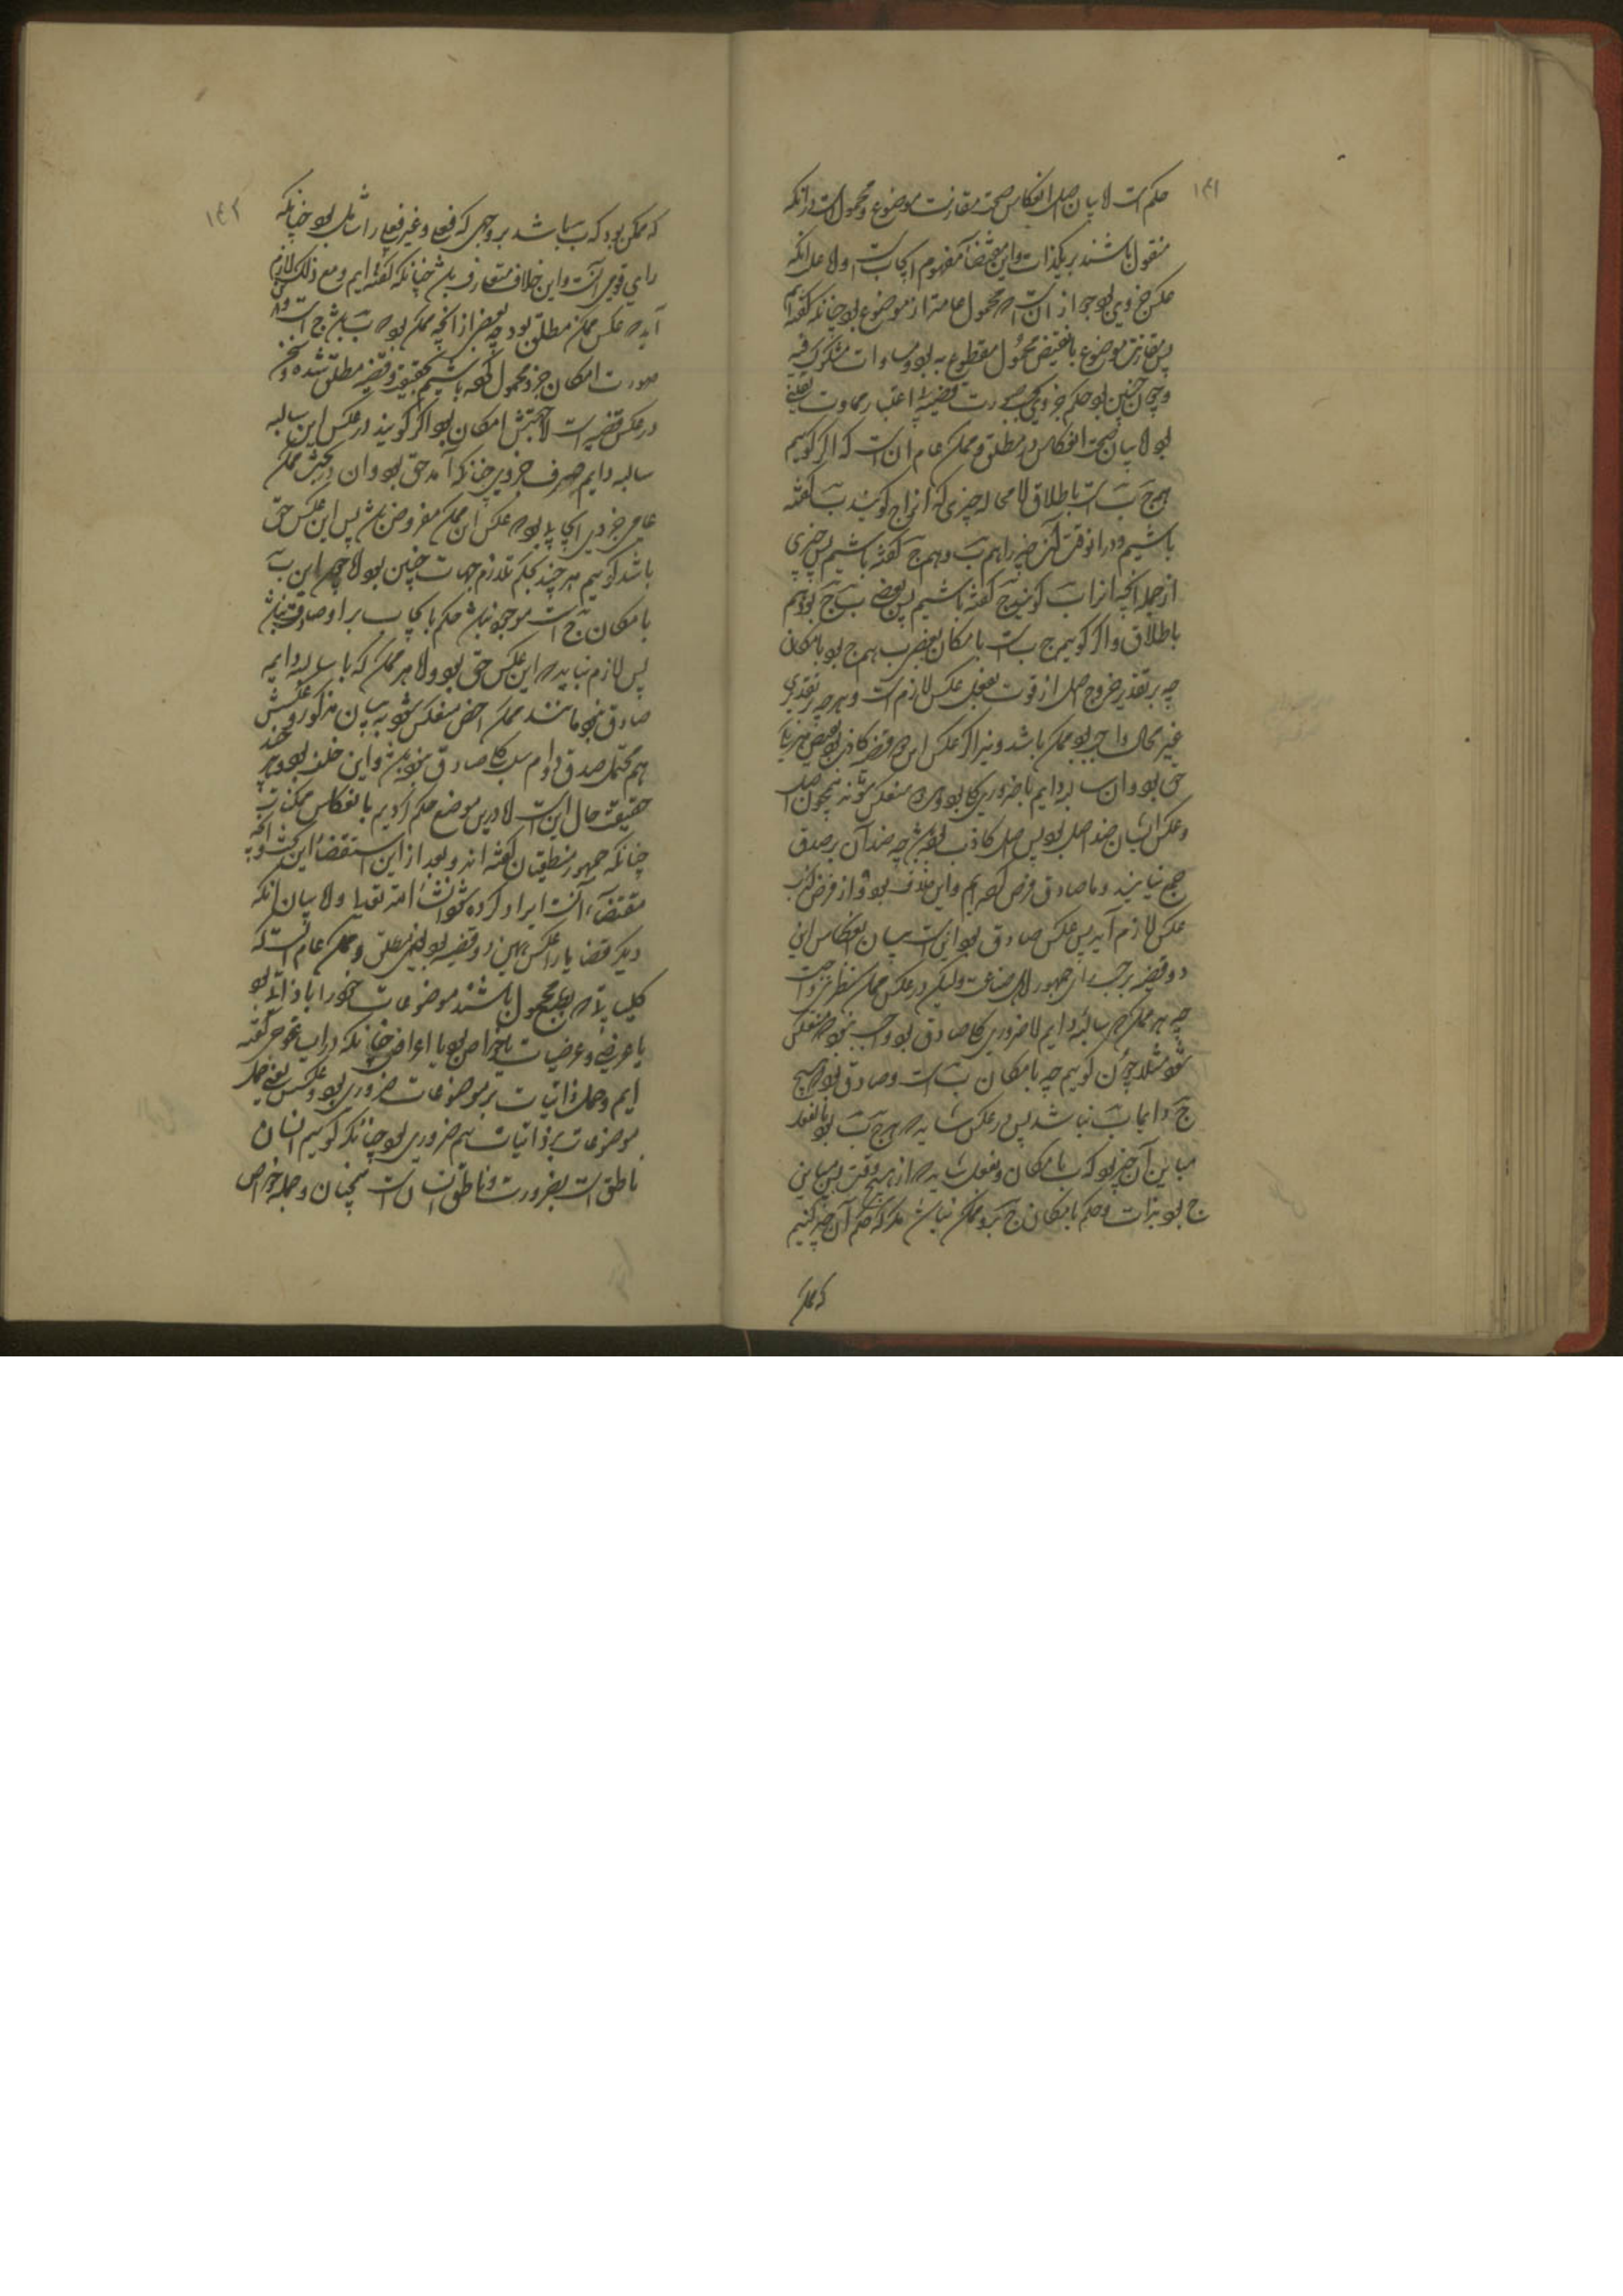 ۱۴۱
حکم است لا بیان اصل انعکاس صحت مقارنت موضوع و محمول است در انکه
مقول باشند بر یکذات و این مقتضاء مفهوم ایجاب است ولا علی انکه
عکس جزوی بود جواز ان است محمول عامتر از موضوع بود چنانکه گفته ایم
پس مقارنت موضوع با نقیض محمول مقطوع به بود و مساوات مشکوک فیه
و چون چنین بود حکم جزوی بحسب صورت قضیه با اعتبار مادت یقینی
بود لا بیان صحت انعکاس در مطلق و ممکن عام ان است که اگر کوییم
هر ج ب است باطلاق لا محاله چیزی که انرا ج کویند ب گفته
باشیم و در انوقت آن چیز را هم ب و هم ج گفته باشیم پس چیزی
از جمله انچه انرا ب کویند ج گفته باشیم پس بعضی ب ج بود هم
باطلاق و اگر کوییم ج ب است بامکان بعضی ب هم ج بود بامکان
چه بر تقدیر خروج اصل از قوت بفعل عکس لازم است و هر چه بر تقدیری
غیر محال واجب بود ممکن باشد و نیز اگر عکس این دو قضیه کاذب بود نقیض هر یک
حق بود و ان سالبه دایم یا ضروری کلی بود و منعکس شوند همچون اصل
و عکس ایشان ضد اصل بود پس اصل کاذب بوده باشد چه ضدان بر صدق
جمع نیایند و ما صادق فرض کرده ایم و این خلف بود و از فرض کذب
عکس لازم آید پس عکس صادق بود اینست بیان انعکاس این
دو قضیه بر حسب رای جمهور اهل صناعت ولیکن در عکس ممکن نظر واجب است
چه هر ممکن سالبه دایم لا ضروری کلی صادق بود واجب نبود منعکس
شود مثلا چون کوییم چه بامکان ب است و صادق بود هیچ
ج دایما ب نباشد پس در عکس شاید هر ج ب بود بالفعل
مباین آن چیز بود که ب بامکان و بفعل شاید از هیچ وقت پس مباین
ج بود بذات و حکم بامکان ج برو ممکن نباشد مگر که حکم آن چیز کنیم
که ممکن
۱۴۲
که ممکن بود که ب باشد بر وجهی که فعلی و غیر فعلی را شامل بود چنانکه
رای قومی است و این خلاف متعارف باشد چنانکه گفته ایم و مع ذلک لازم
آید عکس ممکن مطلق بود چه بعضی از انچه ممکن بود ب باشد ج است
صورت امکان جزو محمول کرده باشیم بحقیقت و قضیه مطلق شده و سخن
در عکس قضیه است لا جهتش امکان بود اگر کویند در عکس این سالبه
سالبه دایم صرف جزوی چنانکه آمد حق بود و ان در بحث ممکن
عامی جزوی ایجابی بود عکس این ممکن مفروض باشد پس این عکس حق
باشد کوییم هر چند بحکم تلازم جهات چنین بود لا چون این ب
بامکان ج است موجود نباشد حکم بایجاب بر او صادق نباشد
پس لازم نیاید این عکس حق بود ولا هر ممکن که با سالبه دایمه
صادق نبود مانند ممکن اخص منعکس شود به بیان مذکور و عکسش
هم محتمل صدق دوام سلب کلی صادق نبوده باشد و این خلف بود و هر چند
حقیقت حال این است لا درین موضع حکم کردیم بانعکاس ممکنات
چنانکه جمهور منطقیان گفته اند و بعد از این استقصاء این بحث و انچه
مقتضاء آنست ایراد کرده شود انشاء الله تعالی ولا بیان انکه
دیگر قضایا را عکس همین دو قضیه بود یعنی مطلق و ممکن عام انست که
کلیاتی بطبع محمول باشند موضوعات خود را یا ذاتی بود
یا عرضی و عرضیات یا خواص بود یا اعراض چنانکه در ایساغوجی گفته
ایم و حمل ذاتیات بر موضوعات ضروری بود و عکسش یعنی حمل
موضوعات بر ذاتیات هم ضروری بود چنانکه کوییم انسان
ناطق است بضرورت و ناطق انسان است همچنان و جمله خواص